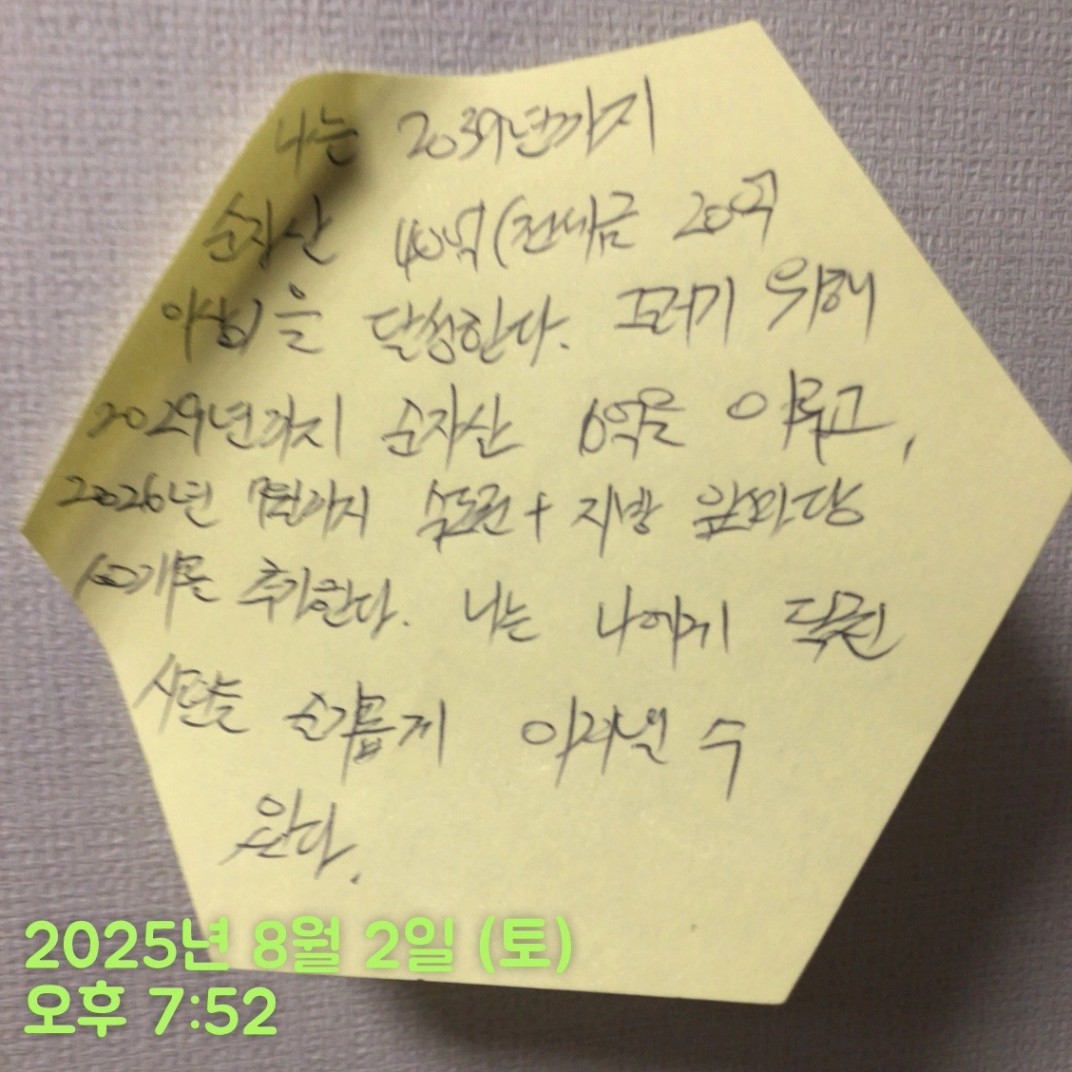 나는 2039년까지
순자산 40억(전세금 20억
이상)을 달성한다. 그러기 위해
2029년까지 순자산 6억을 이루고,
2026년 7월까지 수도권 + 지방 앞마당
10개를 추가한다. 나는 나에게 닥친
시련을 슬기롭게 이겨낼 수
있다.
2025년 8월 2일 (토)
오후 7:52